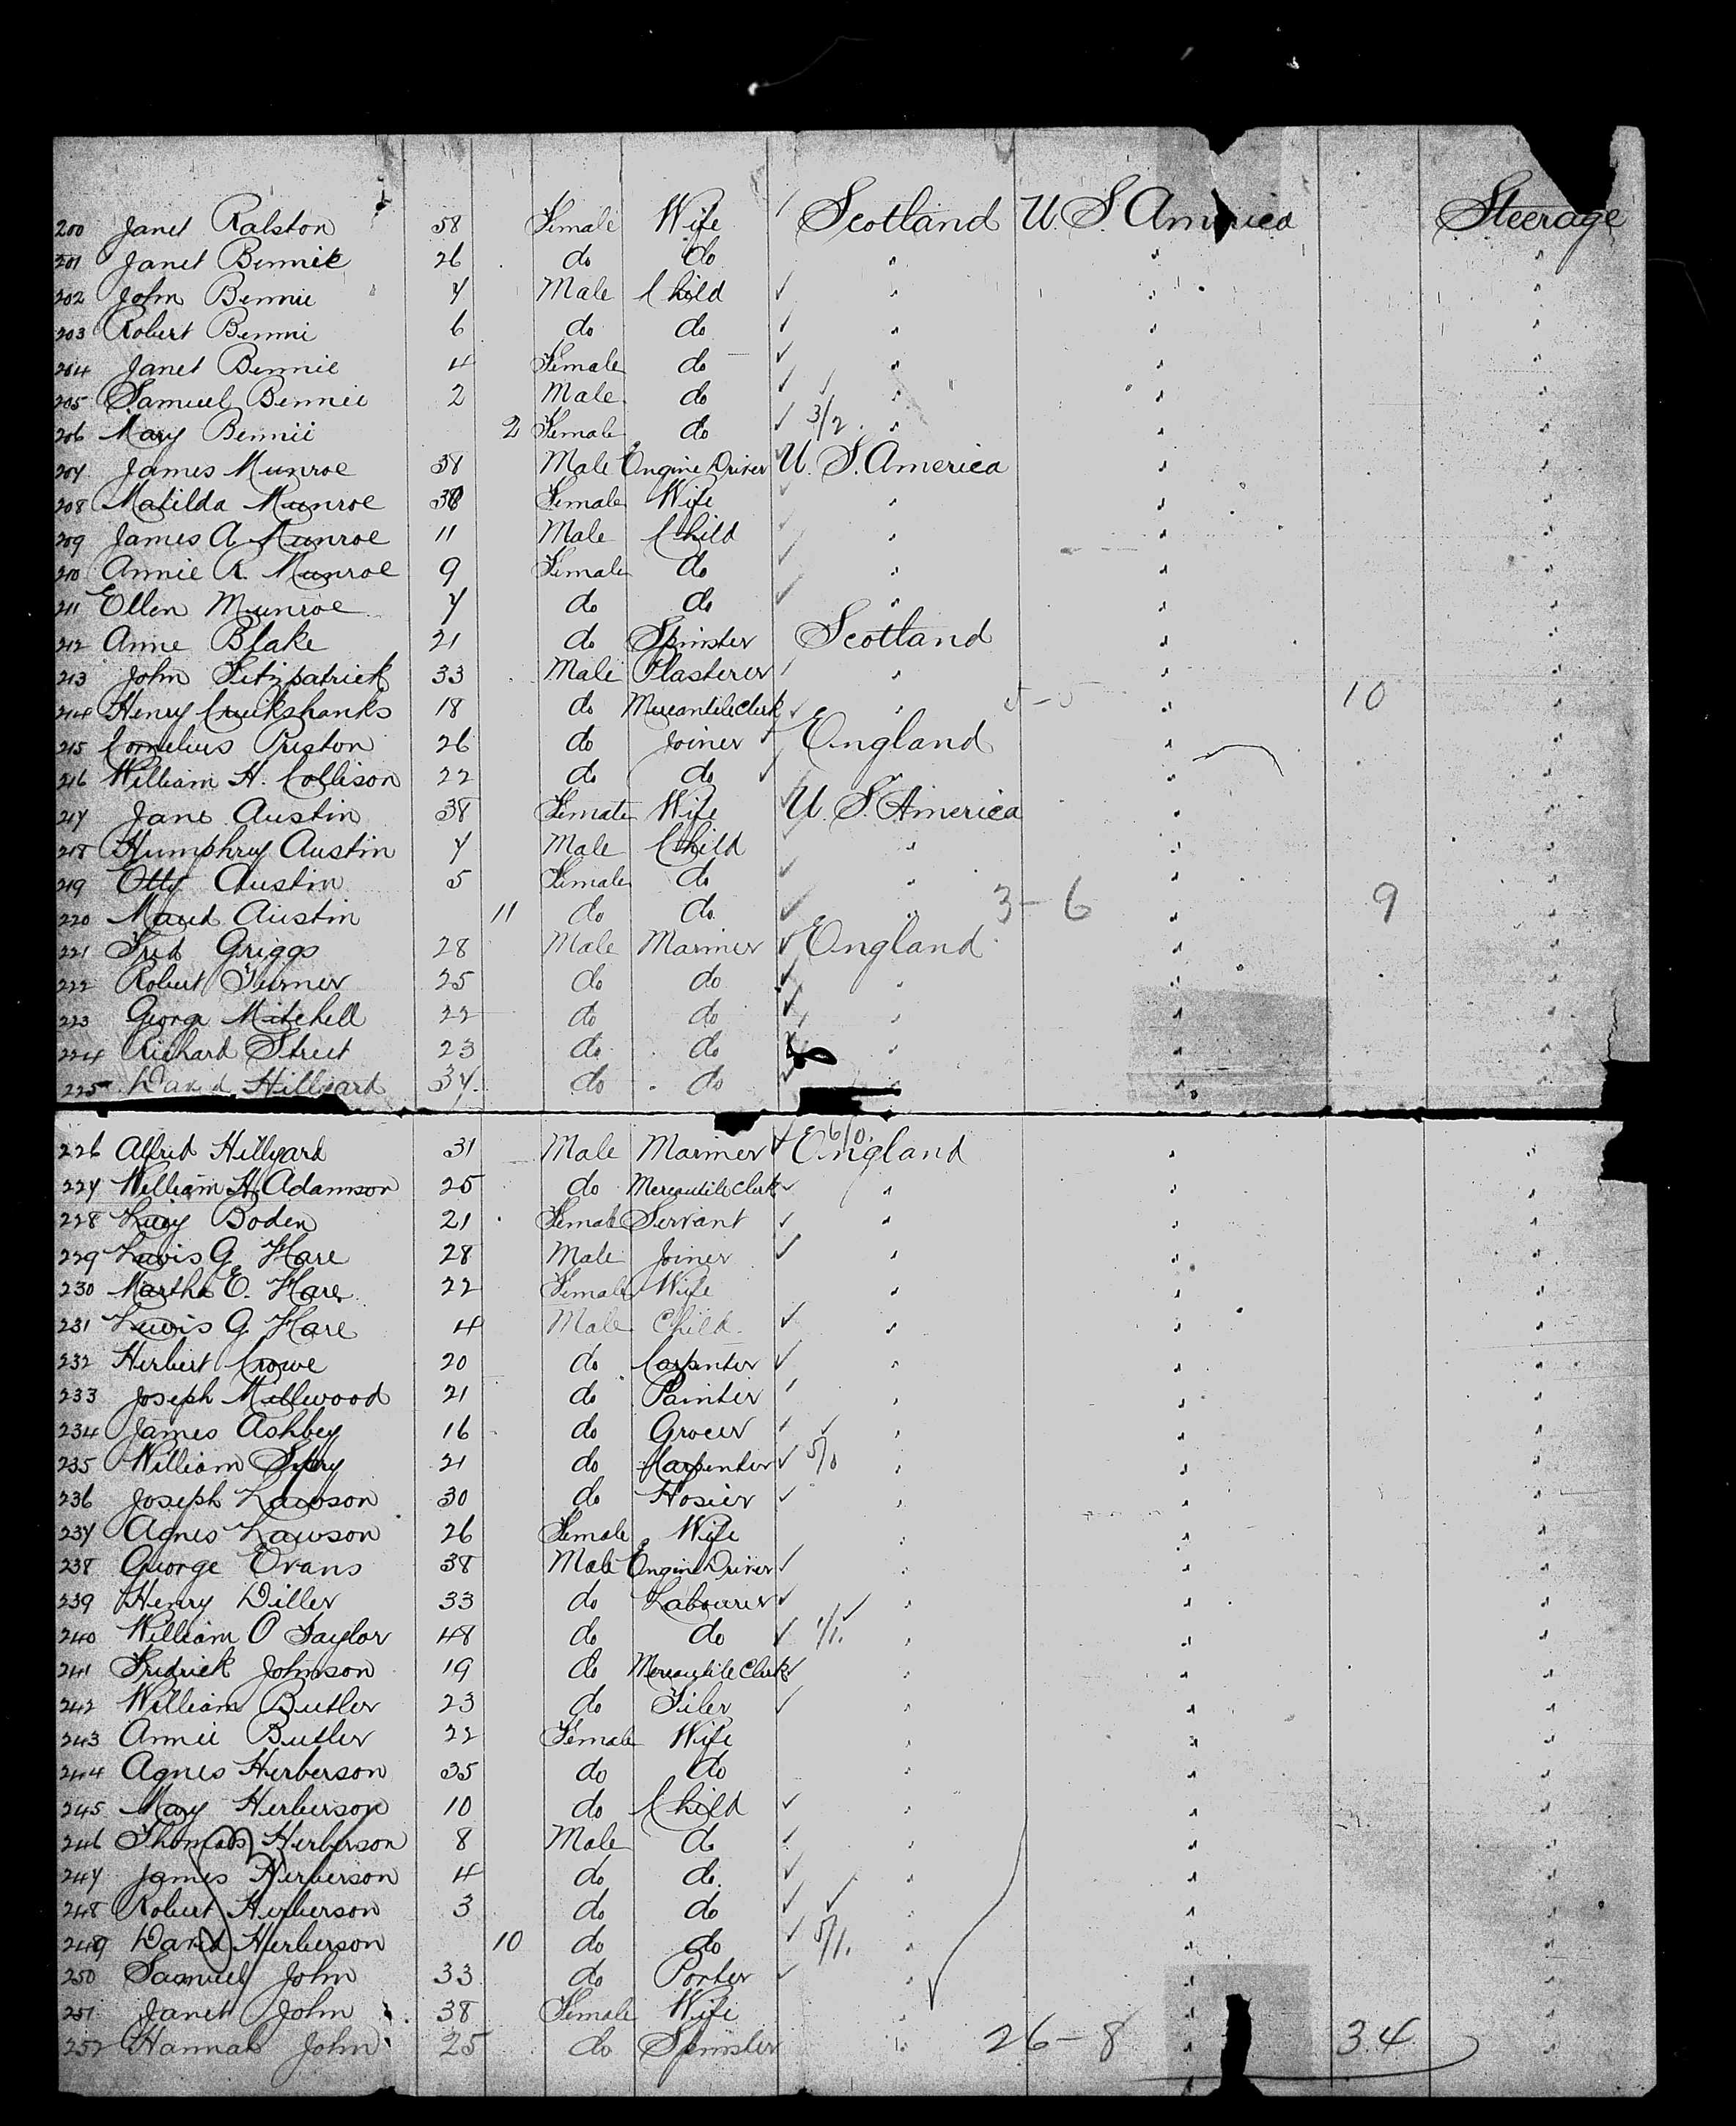 200 Janet Ralston 58 Female Wife Scotland U. S. America Steerage
201 Janet Bennie 26 do do " " "
202 John Bennie 7 Male Child ✓ " " "
203 Robert Bennie 6 do do ✓ " " "
204 Janet Bennie 4 Female do ✓ " " "
205 Samuel Bennie 2 Male do ✓ ✓ " " "
206 Mary Bennie 2 Female do ✓ 3/2. " " "
207 James Munroe 38 Male Engine Driver ✓ U. S. America " "
208 Matilda Munroe Female Wife ✓ " " "
209 James A Munroe 11 Male Child ✓ " " "
210 Annie R. Munroe 9 Female do ✓ " " "
211 Ellen Munroe 7 do do ✓ " " "
212 Anne Blake 21 do Spinster Scotland " "
213 John Fitzpatrick 33 Male Plasterer ✓ " " "
214 Henry Cruikshanks 18 do Mercantile Clerk ✓ " 5-5 " 10 "
215 Cornelius Preston 26 do Joiner ✓ England " "
216 William H. Collison 22 do do ✓ " " "
217 Jane Austin 38 Female Wife ✓ U. S. America " "
218 Humphry Austin 7 Male Child ✓ " " "
219 Otty Austin 5 Female do ✓ " " "
220 Maud Austin 11 do do ✓ " 3-6 " 9 "
221 Fred Griggs 28 Male Mariner ✓ England " "
222 Robert Turner 25 do do ✓ " " "
223 George Mitchell 22 do do ✓ " " "
224 Richard Street 23 do do " " "
225 David Hillyard 37 do do ✓ " " "
226 Alfred Hillyard 31 Male Mariner ✓ 6/0. England " "
227 William H. Adamson 25 do Mercantile Clerk ✓ " " "
228 Lucy Boden 21 Female Servant ✓ " " "
229 Lewis G Hare 28 Male Joiner ✓ " " "
230 Martha E. Hare 22 Female Wife " " "
231 Lewis G Hare 4 Male Child ✓ " " "
232 Herbert Crowe 20 do Carpenter ✓ " " "
233 Joseph Millwood 21 do Painter ✓ " " "
234 James Ashbey 16 do Grocer ✓ ✓ " " "
235 William 21 do Carpenter ✓ 5/0 " " "
236 Joseph Lawson 30 do Hosier ✓ " " "
237 Agnes Lawson 26 Female Wife " " "
238 George Evans 38 Male Engine Driver ✓ " " "
239 Henry Diller 33 do Labourer ✓ ✓ " " "
240 William O Taylor 48 do do ✓ 1/1. " " "
241 Fredrick Johnson 19 do Mercantile Clerk ✓ " " "
242 William Butler 23 do Tiler ✓ " " "
243 Annie Butler 22 Female Wife " " "
244 Agnes Herberson 35 do do " " "
245 Mary Herberson 10 do Child ✓ " " "
246 Thomas Herberson 8 Male do ✓ " " "
247 James Herberson 4 do do ✓ " " "
248 Robert Herberson 3 do do ✓ ✓ " " "
249 David Herberson 10 do do ✓ 5/1. " " "
250 Samuel John 33 do Porter ✓ " " "
251 Janet John 38 Female Wife " " "
252 Hannah John 25 do Spinster " 26-8 " 34 "